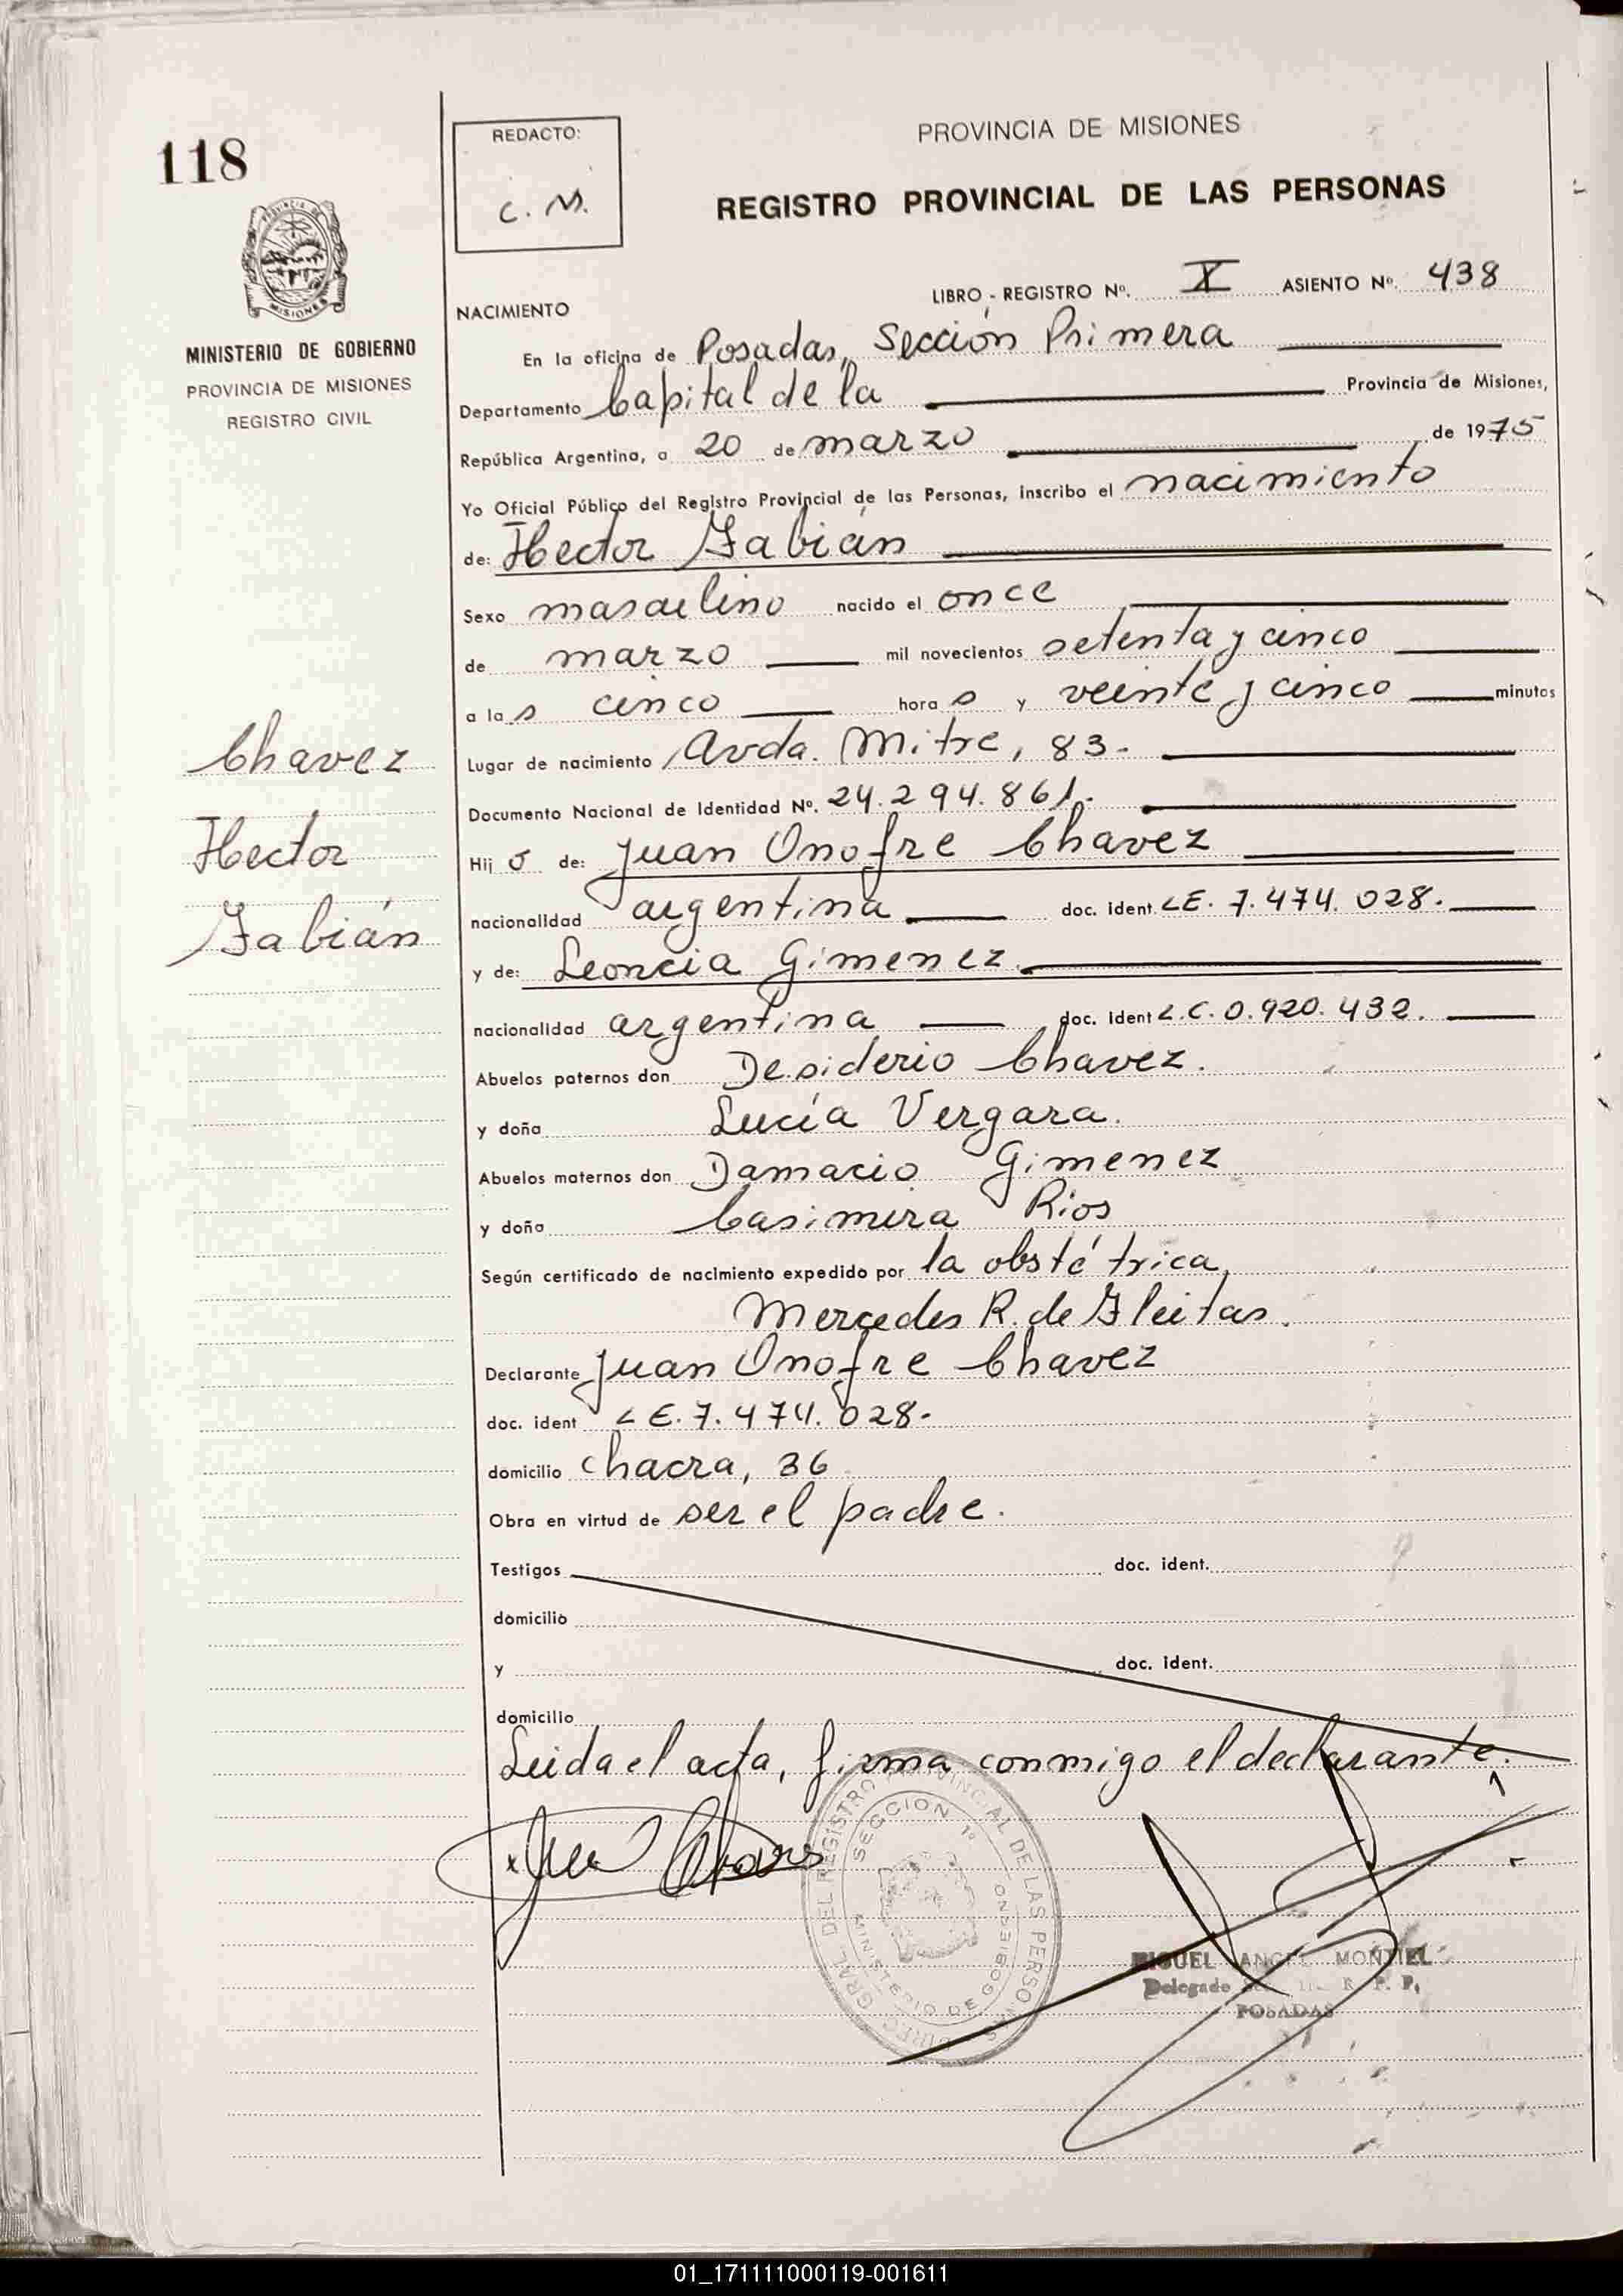 118
REDACTO:
C. M.
PROVINCIA DE MISIONES
REGISTRO PROVINCIAL DE LAS PERSONAS
PROVINCIA DE
MISIONES
MINISTERIO DE GOBIERNO
PROVINCIA DE MISIONES
REGISTRO CIVIL
Chavez
Hector
Fabián
LIBRO - REGISTRO Nº. X ASIENTO Nº. 438
NACIMIENTO
En la oficina de Posadas, Sección Primera
Departamento Capital de la Provincia de Misiones,
República Argentina, a 20 de marzo de 1975
Yo Oficial Público del Registro Provincial de las Personas, inscribo el nacimiento
de: Hector Fabián
Sexo masculino nacido el once
de marzo mil novecientos setenta y cinco
a las cinco horas y veinte y cinco minutos
Lugar de nacimiento Avda. Mitre, 83.-
Documento Nacional de Identidad Nº. 24.294.861.
Hijo de: Juan Onofre Chavez
nacionalidad argentina doc. ident LE. 7.474.028.
y de: Leoncia Gimenez
nacionalidad argentina doc. ident L.C. 0.920.432.
Abuelos paternos don Desiderio Chavez.
y doña Lucía Vergara.
Abuelos maternos don Damacio Gimenez
y doña Casimira Rios
Según certificado de nacimiento expedido por la obstétrica,
Mercedes R. de Fleitas.
Declarante Juan Onofre Chavez
doc. ident LE. 7.474.028.
domicilio chacra, 36
Obra en virtud de ser el padre.
Testigos doc. ident.
domicilio
y doc. ident.
domicilio
Leida el acta, firma conmigo el declarante.
DIREC. GRAL DEL REGISTRO PROVINCIAL DE LAS PERSONAS
SECCION 1º
MINISTERIO DE GOBIERNO
MIGUEL ANGEL MONTIEL
Delegado R. P. P.
POSADAS
01_171111000119-001611